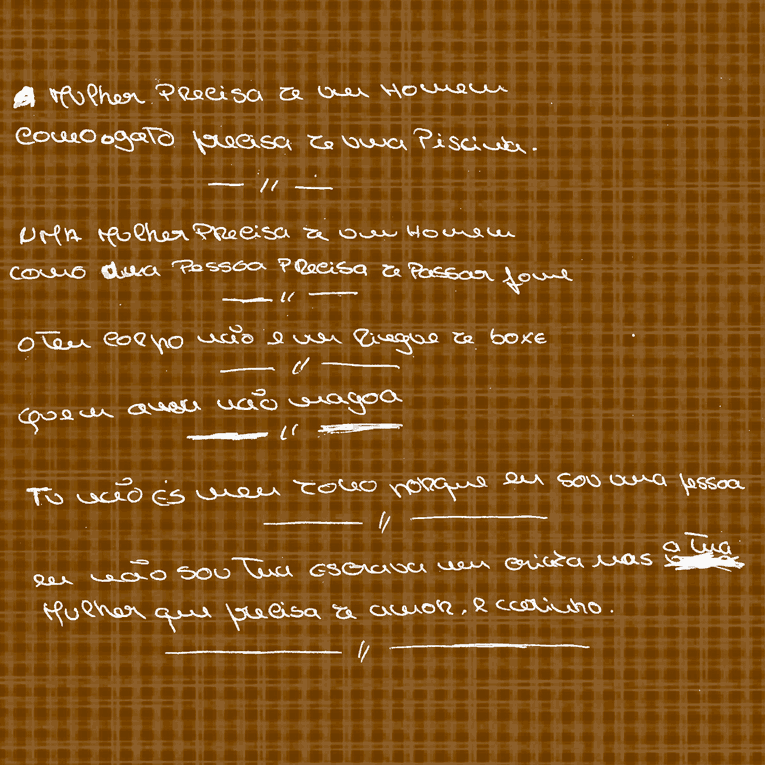 A Mulher Precisa de um Homem
como o gato precisa de uma Piscina.
UMA Mulher Precisa de um Homem
como uma Pessoa Precisa de Passar fome
o Teu corpo não é um Ringue de boxe
quem ama não magoa
Tu não És meu dono porque eu sou uma pessoa
eu não sou Tua escrava nem criada mas a Tua
Mulher que precisa de amor, e carinho.